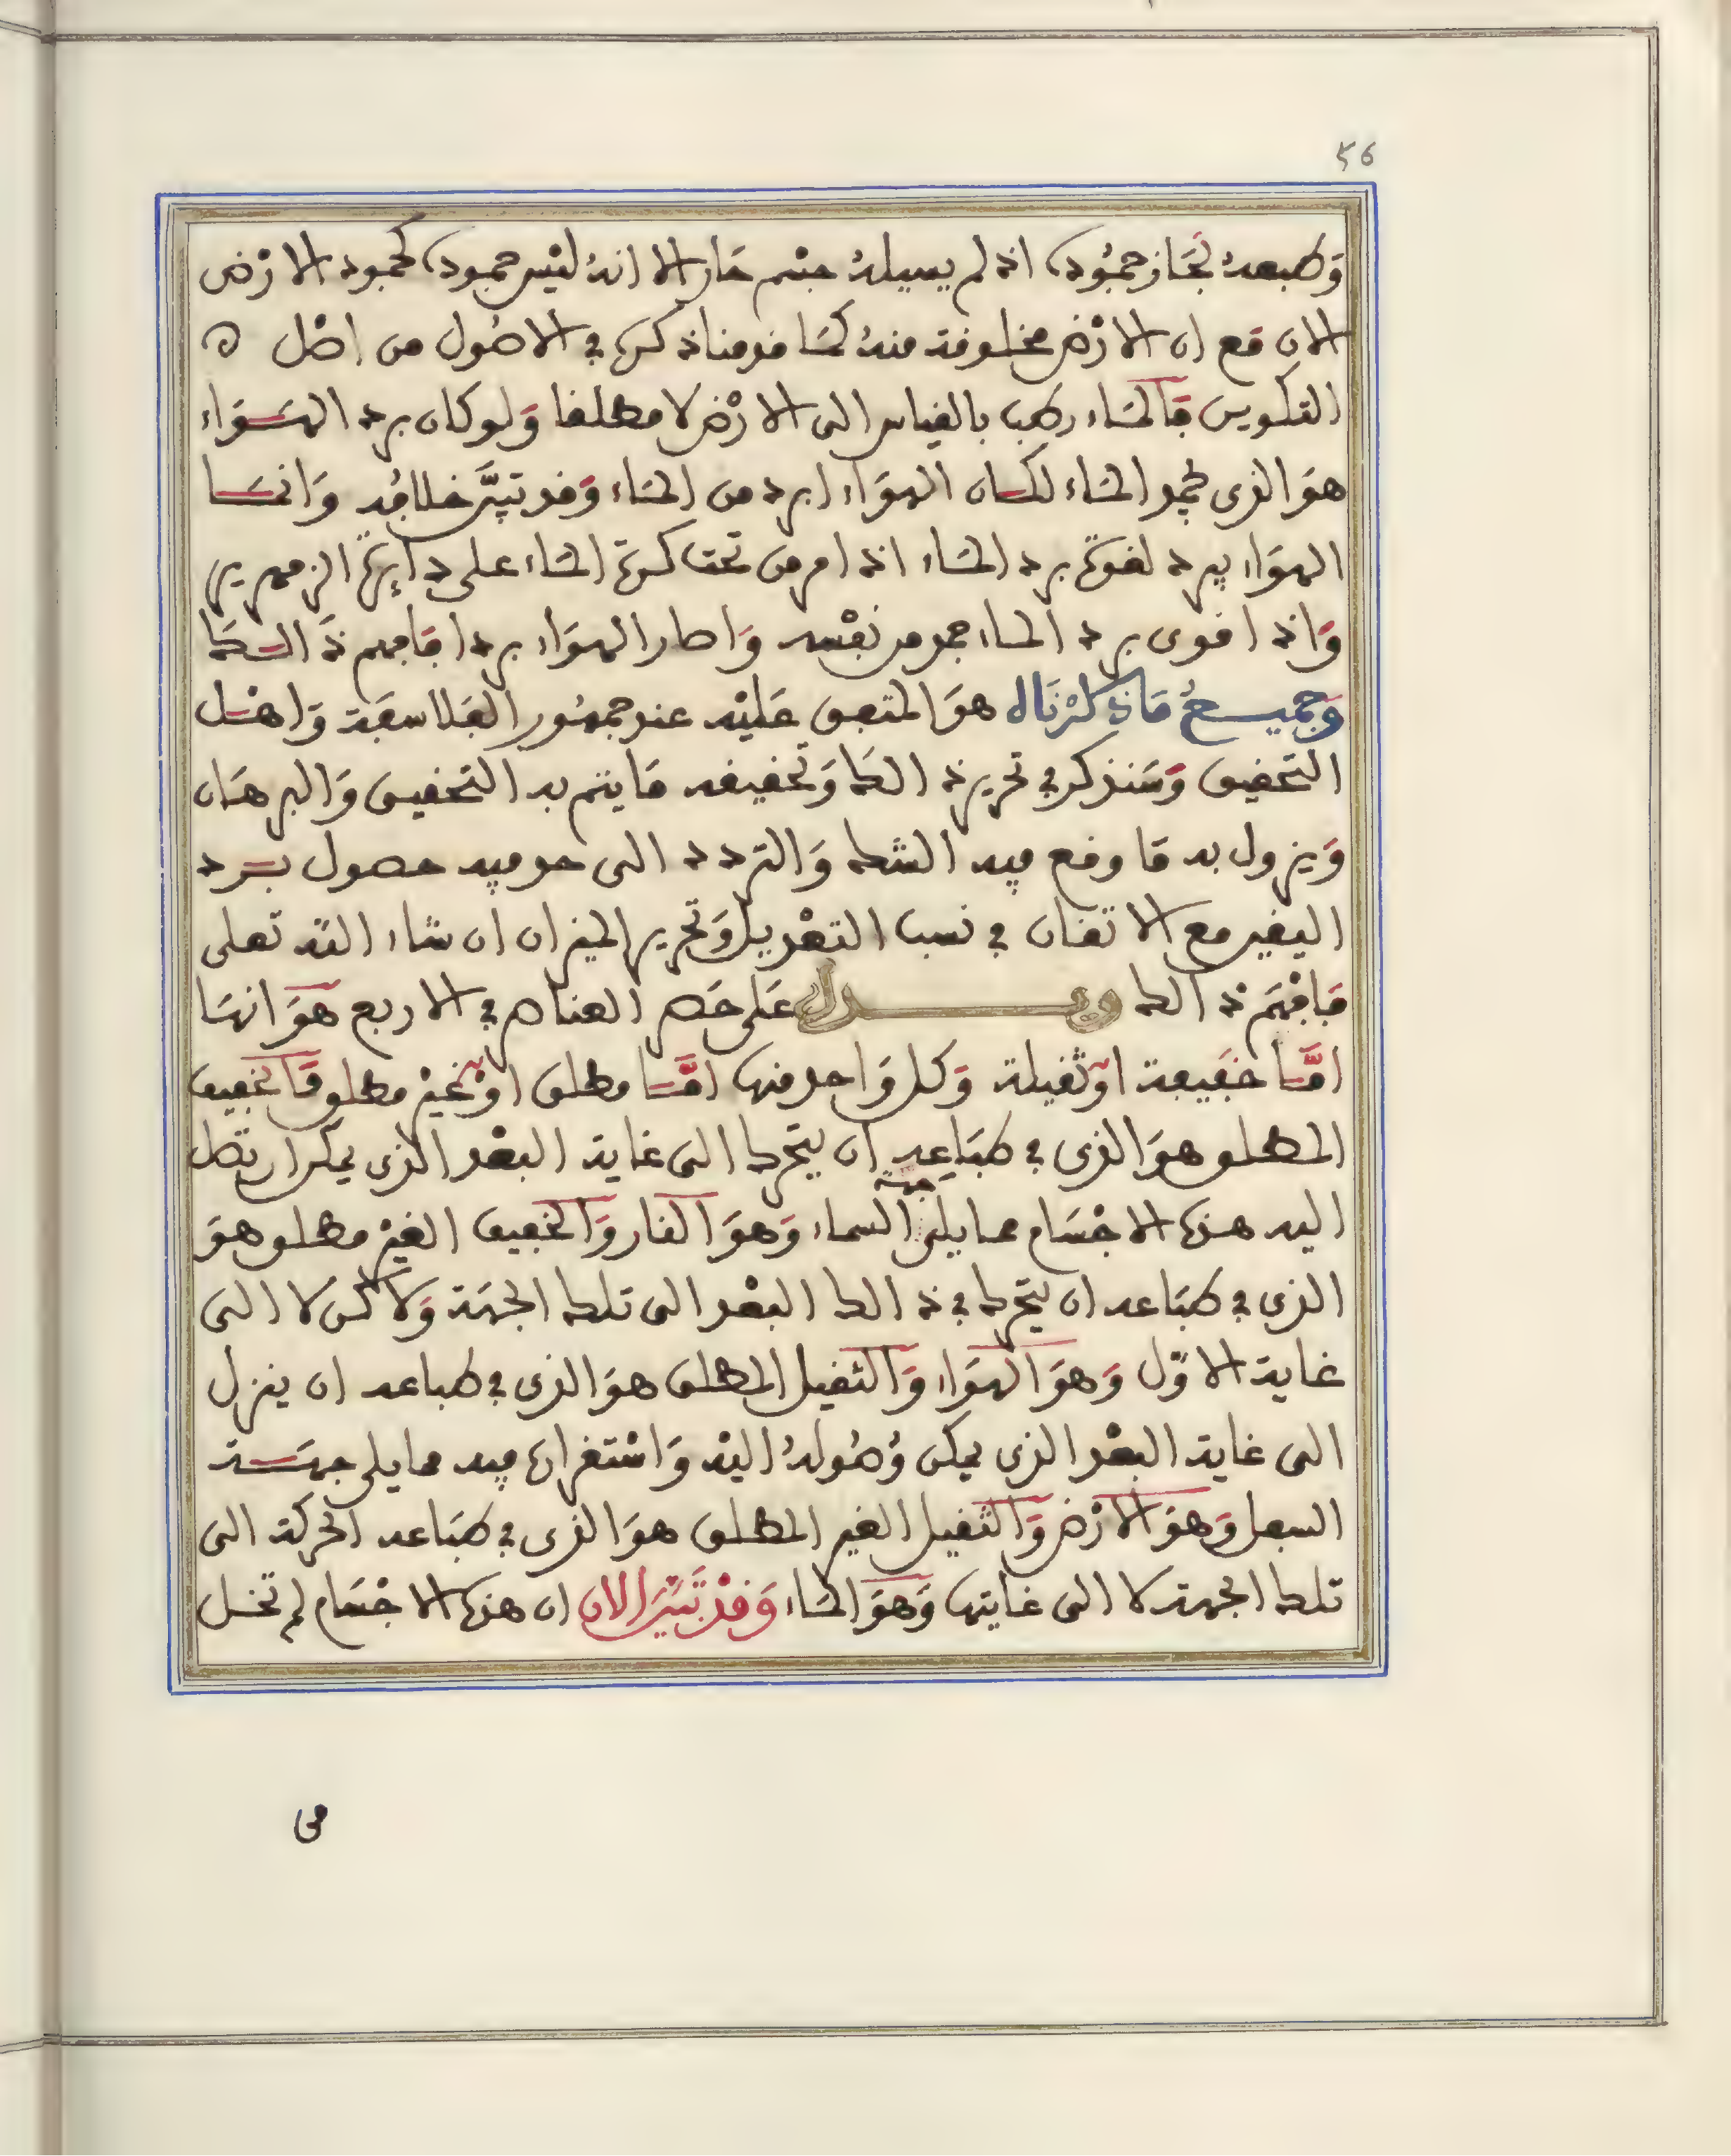 56
وَطبعهُ لجَاز جمُوده اذ لم يسيلهُ جسْم حَار الا انهُ ليْس جموده كجمود الارْض
الان مَع ان الارْض مخلوقة منهُ كمَا قدمنا ذكره في الاصُول من اصْل
التكوين فَالمَاء رطب بالقياس الى الارْض لا مطلقا وَلو كان برد الهَوَاء
هوَ الذى يجمد المَاء لكان الهوَاء ابرد من المَاء وَقد تبيَّن خلافُه وَانمَا
الهوَاء يبرد لقوة برد المَاء اذ امر من تحت كرة المَاء على دايرة الزمهرير
وَاذا قوى برد المَاء جمد من نفْسه وَاصار الهوَاء بردا فَافهم ذَالك
وَجميعُ مَا ذكرْنَاه هوَ المتفق عَليْه عند جمهُور الفَلاسفَة وَاهْل
التحقيق وَسَنذكر في تحرير ذالك وَتحقيقه مَا يتم به التحقيق وَالبرهَان
وَيزول به مَا وقع فيه الشك وَالتردد الى حد فيه حصول برد
اليقين مع الاتقان في نسب التعْديل وَتحرير الميزان ان شاء الله تعلى
فَافْهَم ذالك ويدل عَلى حَصر العناصر في الاربع هوَ انهَا
امَّا خفَيفة اوْ ثقيلة وَكل وَاحد منها امَّا مطلق اوْ غيْر مطلق فَالخفيف
المطلق هوَ الذى في طبَاعه ان يتحرك الى غاية البعْد الذى يمكن ان تصل
اليه هذه الاجْسَام مما يلى جهة السماء وَهوَ النار وَالخفيف الغيْر مطلق هوَ
الذى في طبَاعه ان يتحرك في ذالك البعْد الى تلك الجهَة وَلاكن لا الى
غاية الاوّل وَهوَ الهوَاء وَالثقيل المطلق هوَ الذى في طباعه ان ينزل
الى غاية البعْد الذى يمكن وُصُولهُ اليْه وَاسْتقراره فيه مما يلى جهَة
السفل وَهوَ الارْض وَالثقيل الغير المطلق هوَ الذى في طبَاعه الحركة الى
تلك الجهة لا الى غايتها وَهوَ المَاء وَقدْ تَبيّن الان ان هذه الاجْسَام لم تخل
من